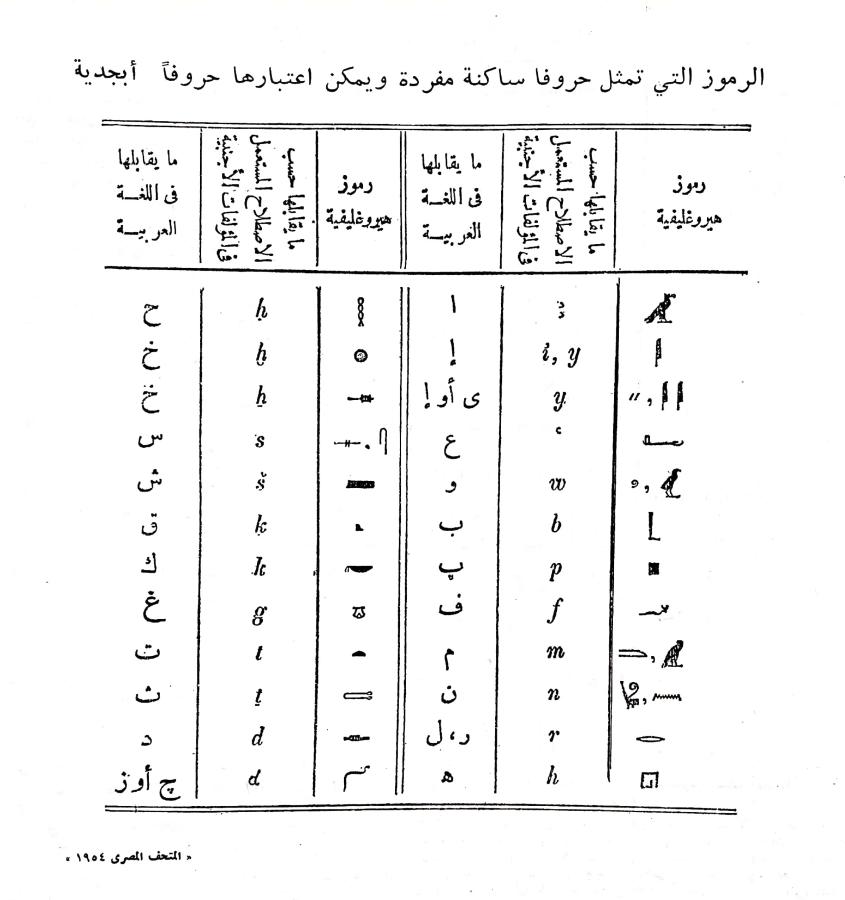 الرموز التي تمثل حروفا ساكنة مفردة ويمكن اعتبارها حروفاً أبجدية
رموز هيروغليفية
ما يقابلها حسب الاصطلاح المستعمل فى المؤلفات الأجنبية
ما يقابلها فى اللغة العربية
رموز هيروغليفية
ما يقابلها حسب الاصطلاح المستعمل فى المؤلفات الأجنبية
ما يقابلها فى اللغة العربية
ا ḥ ح
i, y إ ḫ خ
y ى أو إ ẖ خ
ʿ ع s س
w و š ش
b ب ḳ ق
p پ k ك
f ف g غ
m م t ت
n ن ṯ ث
r ر، ل d د
h ه d چ أوز
« المتحف المصرى ١٩٥٤ »